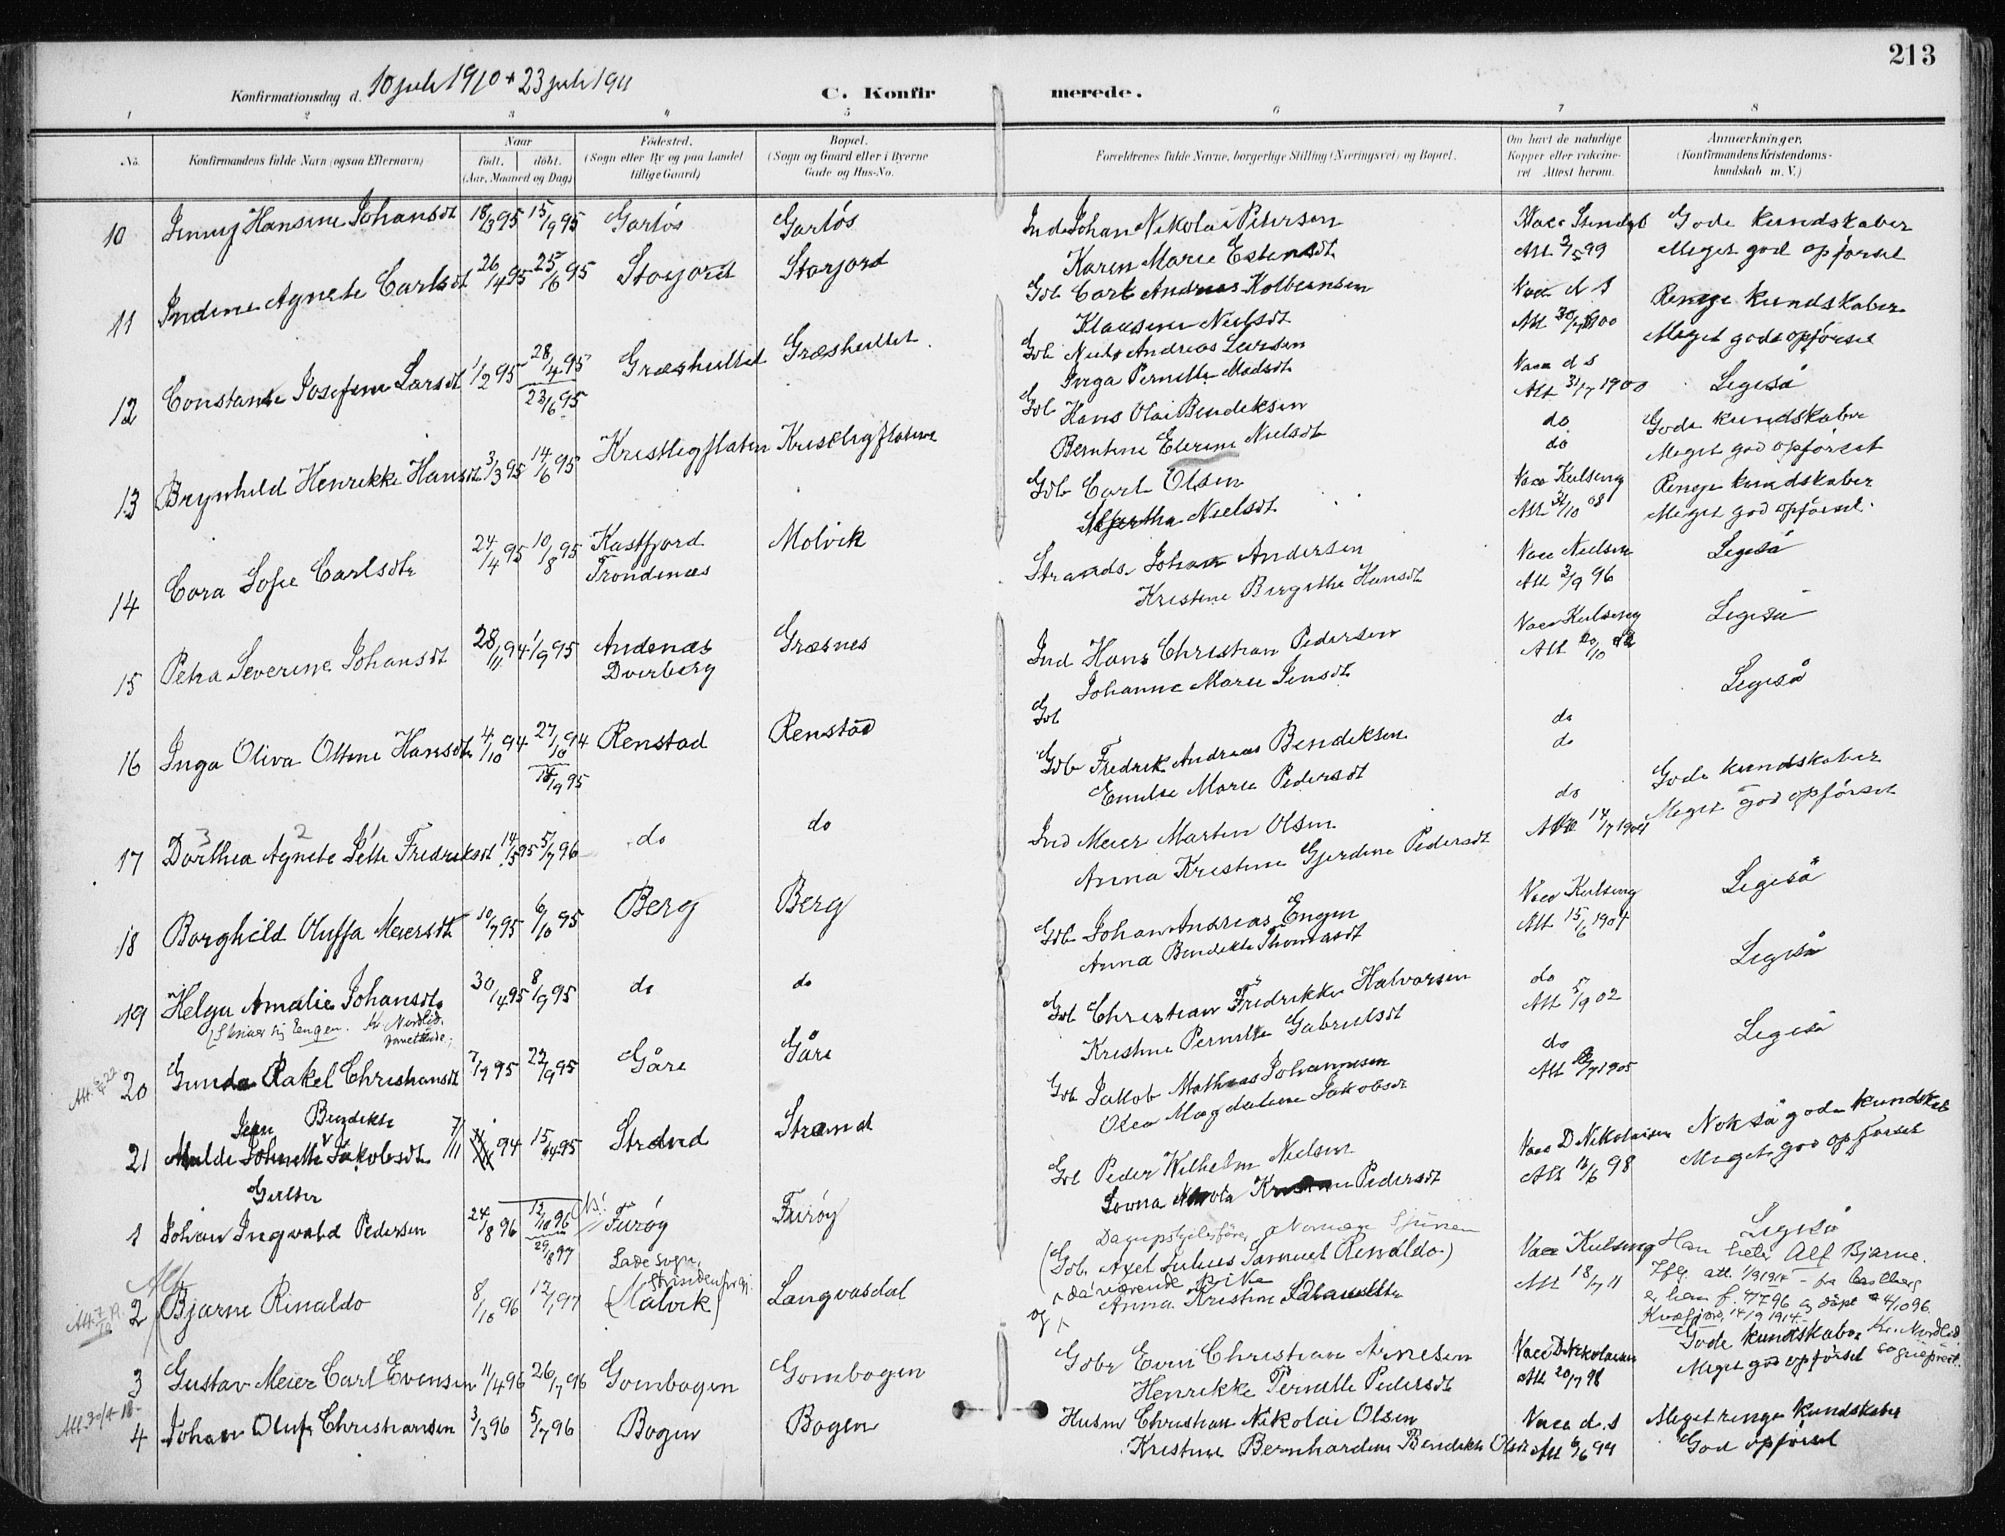 213
Konfirmationsdag d. 10 juli 1910 + 23 juli 1911
C. Konfirmerede.
1 2 3 4 5 6 7 8
No. Konfirmandens fulde Navn (ogsaa Efternavn)
Naar
født. døbt.
(Aar, Maaned og Dag)
Fødested.
(Sogn eller By og paa Landet
tillige Gaard)
Bopæl.
(Sogn og Gaard eller i Byerne
Gade og Hus-No.
Forældrenes fulde Navne, borgerlige Stilling (Næringsvei) og Bopæl.
Om havt de naturlige
Kopper eller vaksine-
ret Attest herom.
Anmærkninger.
(Konfirmandens Kristendoms-
kundskab m. V.)
10 Jenny Hansine Johansdt 18/3 95 15/9 95 Garlös Garlös Ind Johan Nikolai Petersen
Karen Marie Estensdt
Att 3/5 99 Gode kundskaber
Meget god opførsel
11 Indine Agnete Carlsdt 26/4 95 25/6 95 Storjord Storjord Gbl Carl Andreas Kolbeinsen
Klausine Nielsdt
Vacc d s Ringe kundskaber
Meget god opførsel
12 Constanse Josefine Larsdt 1/2 95 28/4 95
23/6 95 Græshullet Græshullet Gbl Niels Andreas Larsen
Inga Pernelle Madsdt
Vacc d s
Att 31/7 1900 Ligeså
13 Brynhild Henrikke Hansdt 3/3 95 14/6 95 Kristligflaten Kristligflaten Gbl Hans Olai Bendiksen
Berntine Elerine Nielsdt
do
do Gode kundskaber
Meget god opførsel
14 Cora Sofie Carlsdtr 24/4 95 10/8 95 Kastfjord
Trondenæs Molvik Gbr Carl Olsen
Martha Nielsdt
Vacc Kulseng
Att 31/10 08 Ringe kundskaber
Meget god opførsel.
15 Petra Severine Johansdt 28/11 94 1/9 95 Andenæs
Dverberg Græsnes Strands. Johan Andersen
Kristine Birgithe Hansdt
Vacc Nielsen
Att 3/9 96 Ligeså
16 Inga Oliva Ottine Hansdt 4/10 94 27/10 94 Renstad Renstad Ind Hans Christian Pedersen
Johanne Marie Jensdt
Vacc Kulseng Ligeså
Gbl
Ligeså
17 Dorthea Agnete Jette Fredriksdt 14/5 95 5/7 96 do do Gbr Fredrik Andreas Bendiksen
Emilie Marie Pedersdt
do
do
18 Borghild Oluffa Meiersdt 10/7 95 6/10 95 Berg Berg Ind Meier Martin Olsen
Anna Kristine Gjerdine Pedersdt
do
Att 14/7 1904 Gode kundskaber
Meget god opførsel
19 Helga Amalie Johansdt. 30/4 95 8/9 95 do do Gbr Johan Andreas Engen
Anna Bendikte Thomasdt
Vacc Kulseng
Att 15/6 1904 Ligeså
(Skriver sig Engen. Kr. Nordlid.
20 Gunda Rakel Christiansdt 7/7 95 22/9 95 Gåre Gåre Gbl Christian Fredrikke Halvorsen
Kristine Pernille Gabrielsdt
do
Att 5/9 02 Ligeså
Jenn Bendikte
21 Malde Johnette Jakobsdt 7/11 94 15/4 95 Strand Strand Gbl Jakob Mathias Johannesen
Olea Magdalene Jakobsdt
do Ligeså
Gutter
1 Johan Ingvald Pedersen 24/8 96 12/10 96
29/8 97 Furøy Furøy Gbl Peder Wilhelm Nielsen
Lovina Pedersdt
Vacc D Nikolaisen
Att 12/6 98 Nok så gode kundskab
Meget god opførsel
Alf
2 Bjarne Rinaldo 8/10 96 12/1 97 Lade sogn,
(Malvik) Langvasdal
(Gbr. Axel Julius Samuel Rinaldo.)
og Anna Kristine
Vacc Kulseng
Att 18/7 11 Ligeså
Han heter Alf Bjarne.
Iflg. att. 1/9 1914 fra
er han f. 4/7 96 og døpt 4/10 96.
Kvæfjord, 14/9 1914.
Kr. Nordlid
sogneprest.
3 Gustav Meier Carl Evensen 11/4 96 26/7 96 Gombogen Gombogen Gbr Even Christian Arnesen
Henrikke Pernelle Pedersdt
Vacc D Nikolaisen
Att 20/7 98 Gode kundskaber
Meget god opførsel
4 Johan Oluf Christiansen 3/3 96 5/7 96 Bogen Bogen Husm Christian Nikolai Olsen
Kristine Bernhardine Bendikte Olsdt
Vacc d. s Meget ringe kundskaber
God opførsel